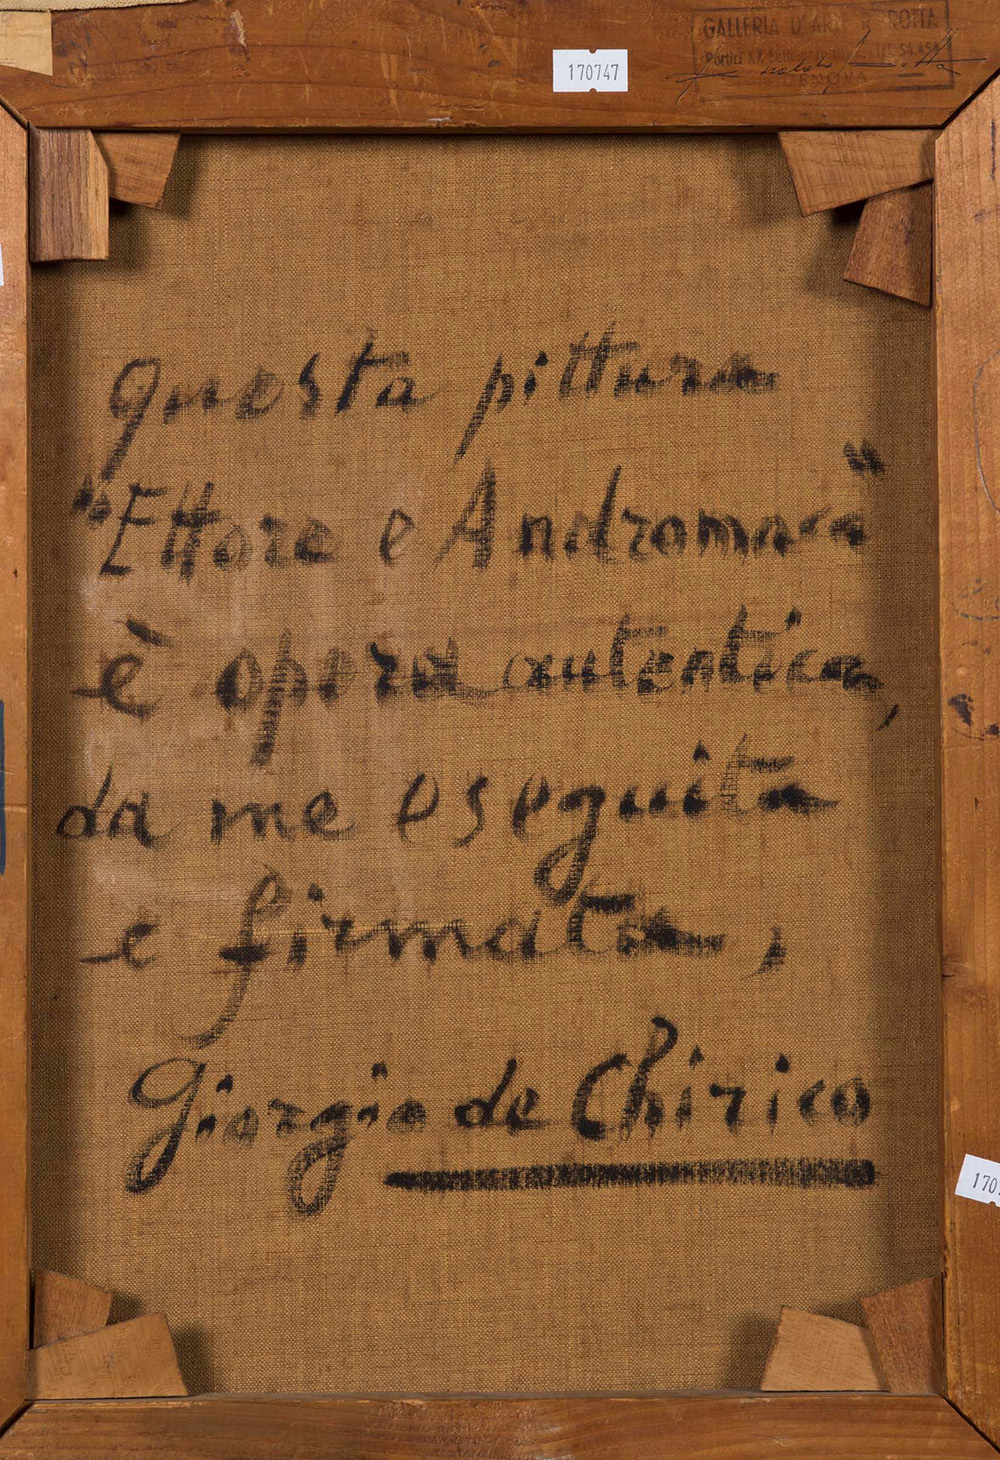 GALLERIA D'ARTE ROTTA
GENOVA
170747
Questa pittura
"Ettore e Andromaca"
è opera autentica,
da me eseguita
e firmata,
Giorgio de Chirico
170